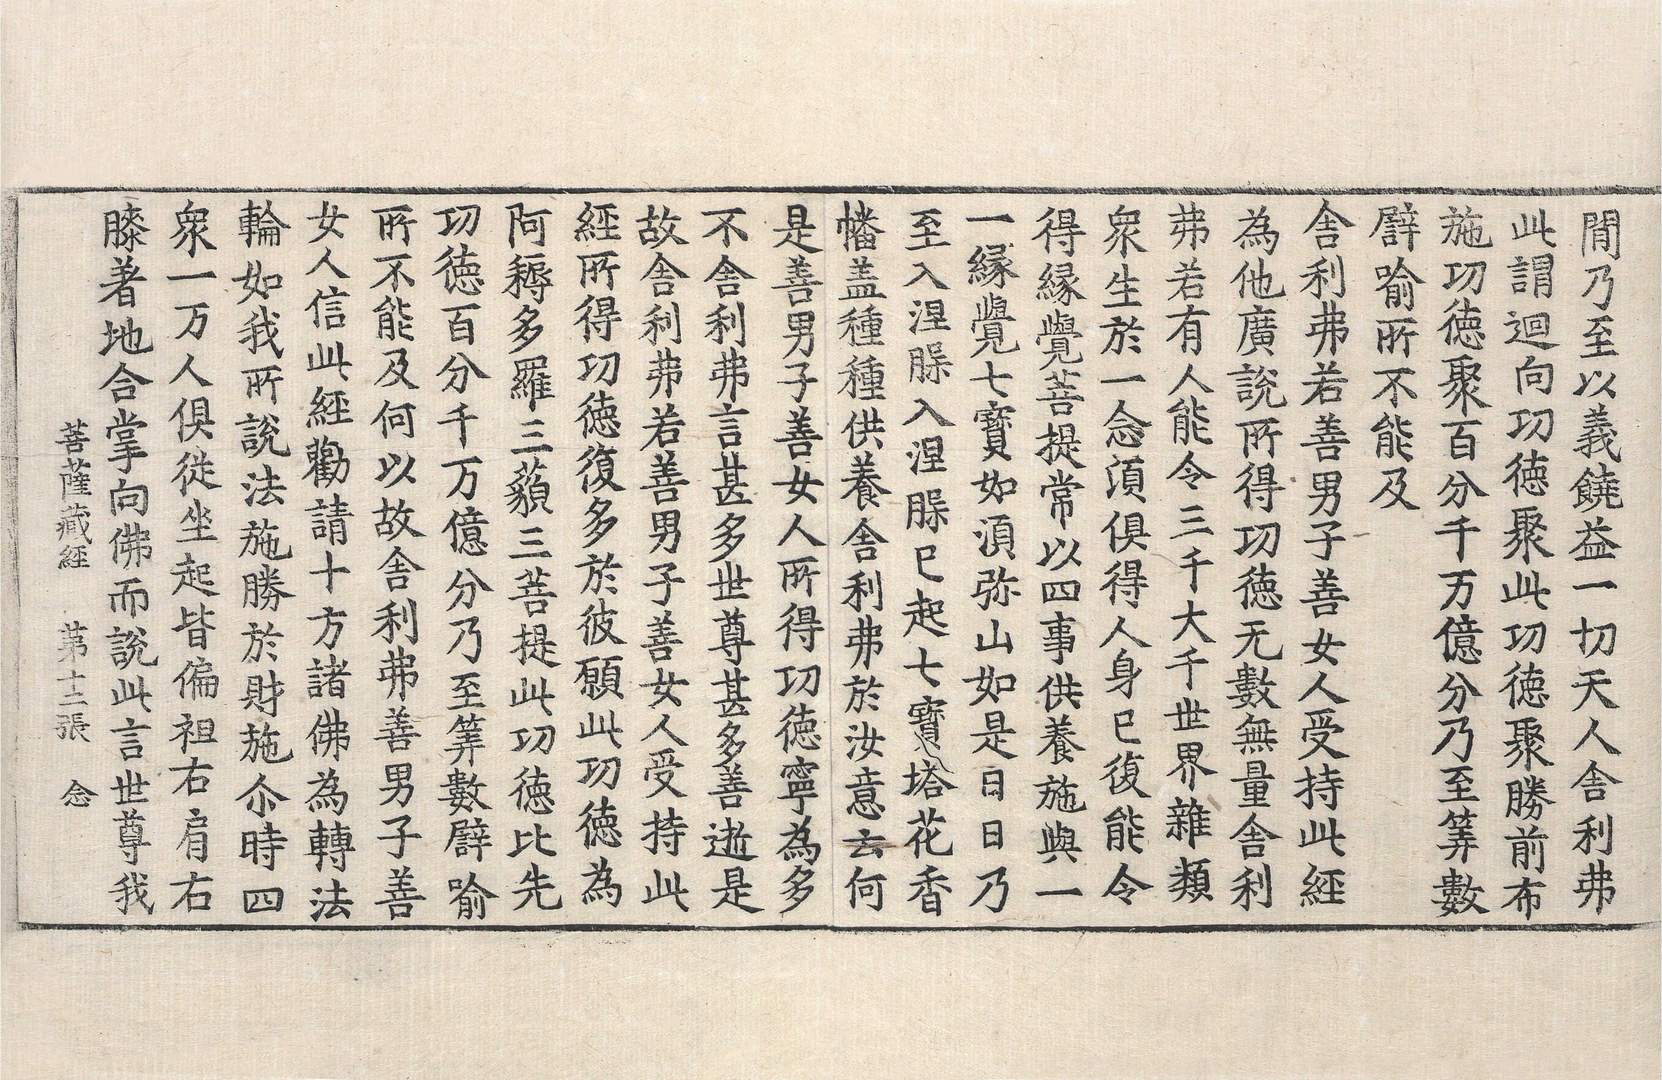 間乃至以義饒益一切天人舎利弗
此謂迴向功徳聚此功徳聚勝前布
施功徳聚百分千万億分乃至筭數
譬喻所不能及
舎利弗若善男子善女人受持此經
為他廣說所得功徳无數無量舎利
弗若有人能令三千大千世界雜類
衆生於一念湏俱得人身已復能令
得縁覺菩提常以四事供養施與一
一縁覺七寳如湏弥山如是日日乃
至入涅槃入涅槃已起七寳塔花香
幡盖種種供養舎利弗於汝意云何
是善男子善女人所得功徳寧為多
不舎利弗言甚多世尊甚多善逝是
故舎利弗若善男子善女人受持此
經所得功徳復多於彼願此功徳為
阿耨多羅三藐三菩提此功徳比先
功徳百分千万億分乃至筭數譬喻
所不能及何以故舎利弗善男子善
女人信此經勸請十方諸佛為轉法
輪如我所說法施勝於財施尒時四
衆一万人俱從坐起皆偏袒右肩右
膝著地合掌向佛而說此言世尊我
菩薩藏經 第十二張 念